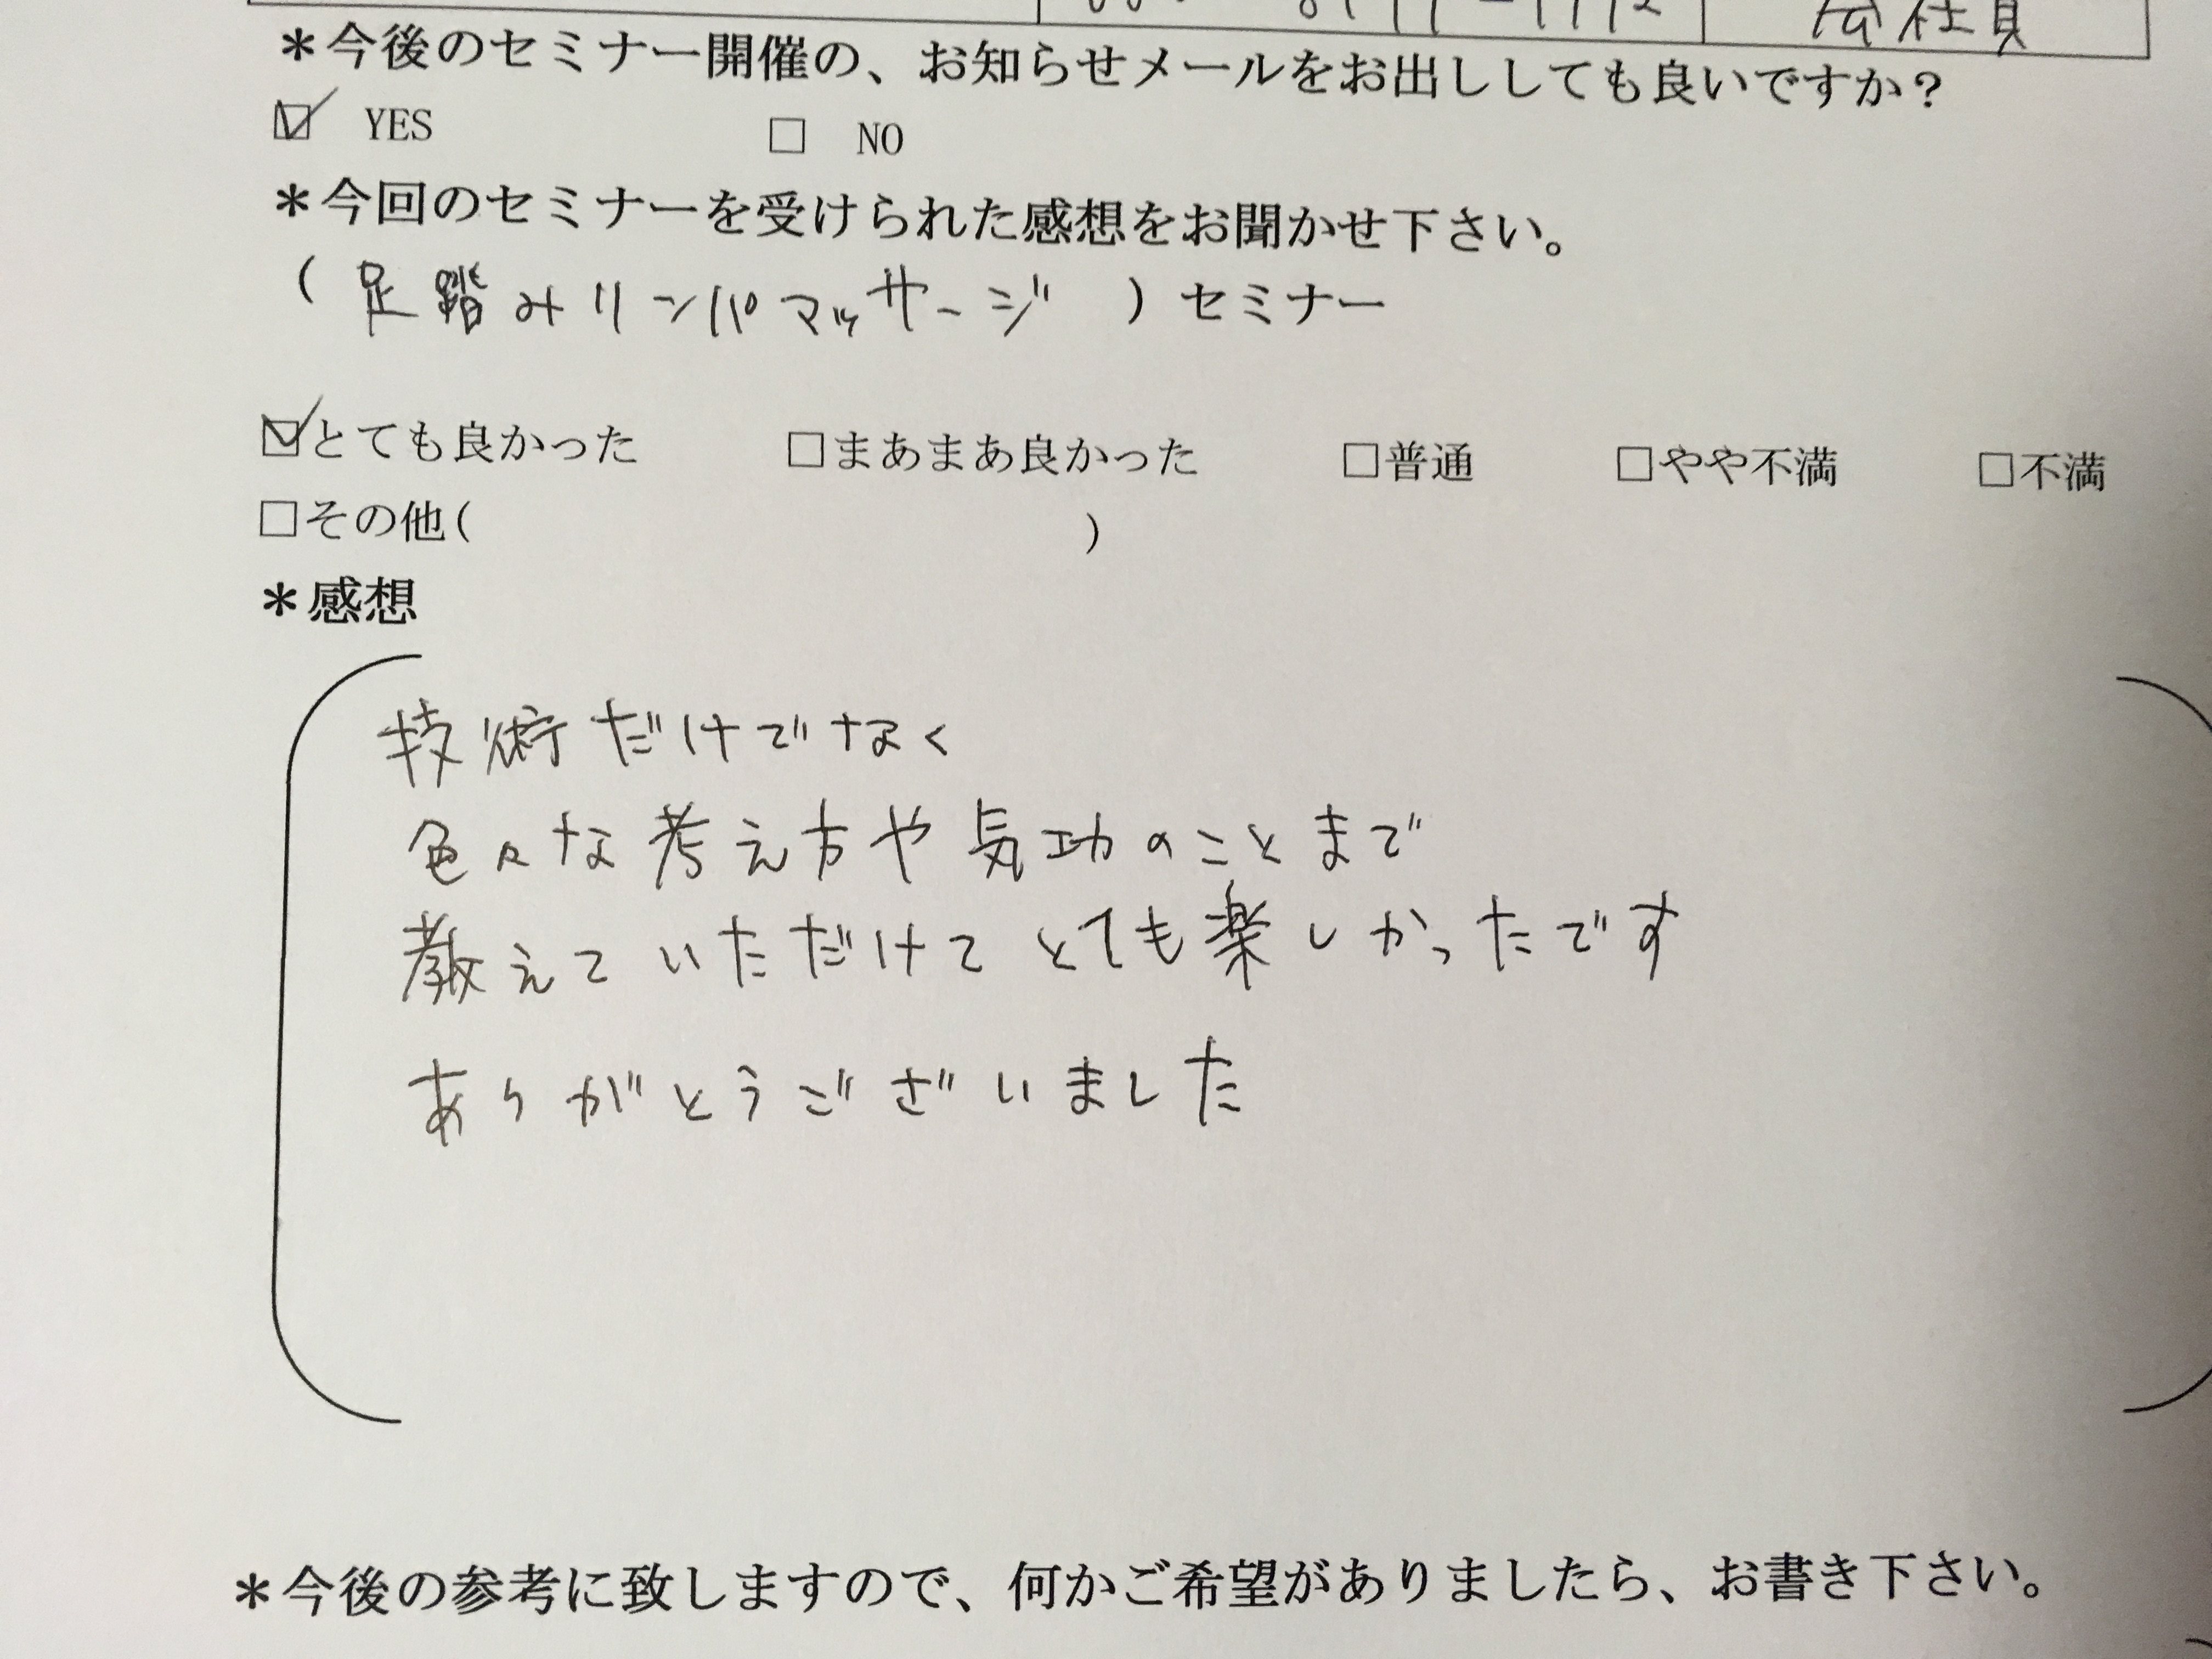 会社員
＊今後のセミナー開催の、お知らせメールをお出ししても良いですか？
☑ YES □ NO
＊今回のセミナーを受けられた感想をお聞かせ下さい。
（足踏みリンパマッサージ）セミナー
☑とても良かった □まあまあ良かった □普通 □やや不満 □不満
□その他( )
＊感想
技術だけでなく
色々な考え方や気功のことまで
教えていただけてとても楽しかったです
ありがとうございました
＊今後の参考に致しますので、何かご希望がありましたら、お書き下さい。